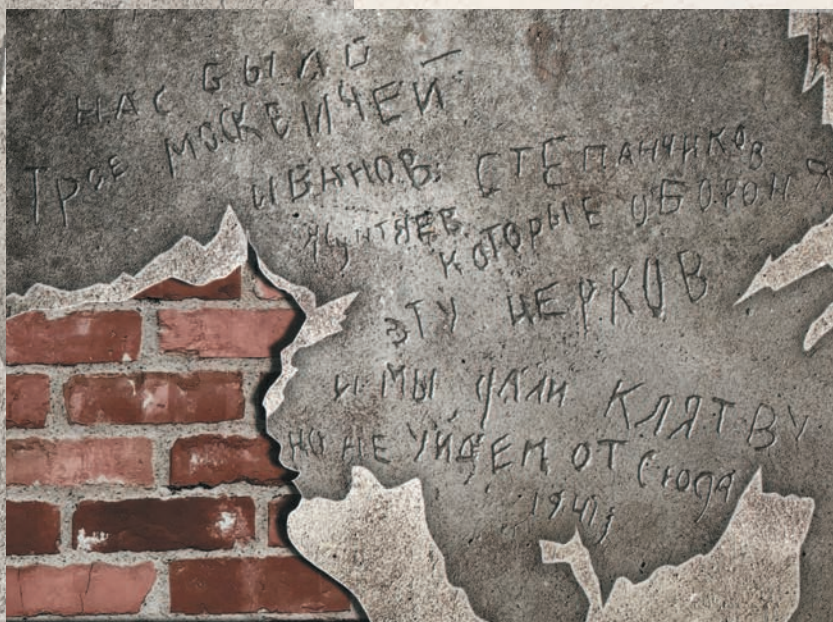 НАС БЫЛО —
ТРОЕ МОСКВИЧЕЙ
ИВАНОВ, СТЕПАНЧИКОВ
Жунтяев КОТОРЫЕ ОБОРОНЯ
ЭТУ ЦЕРКОВ
И МЫ ДАЛИ КЛЯТВУ
НО НЕ УЙДЕМ ОТ СЮДА